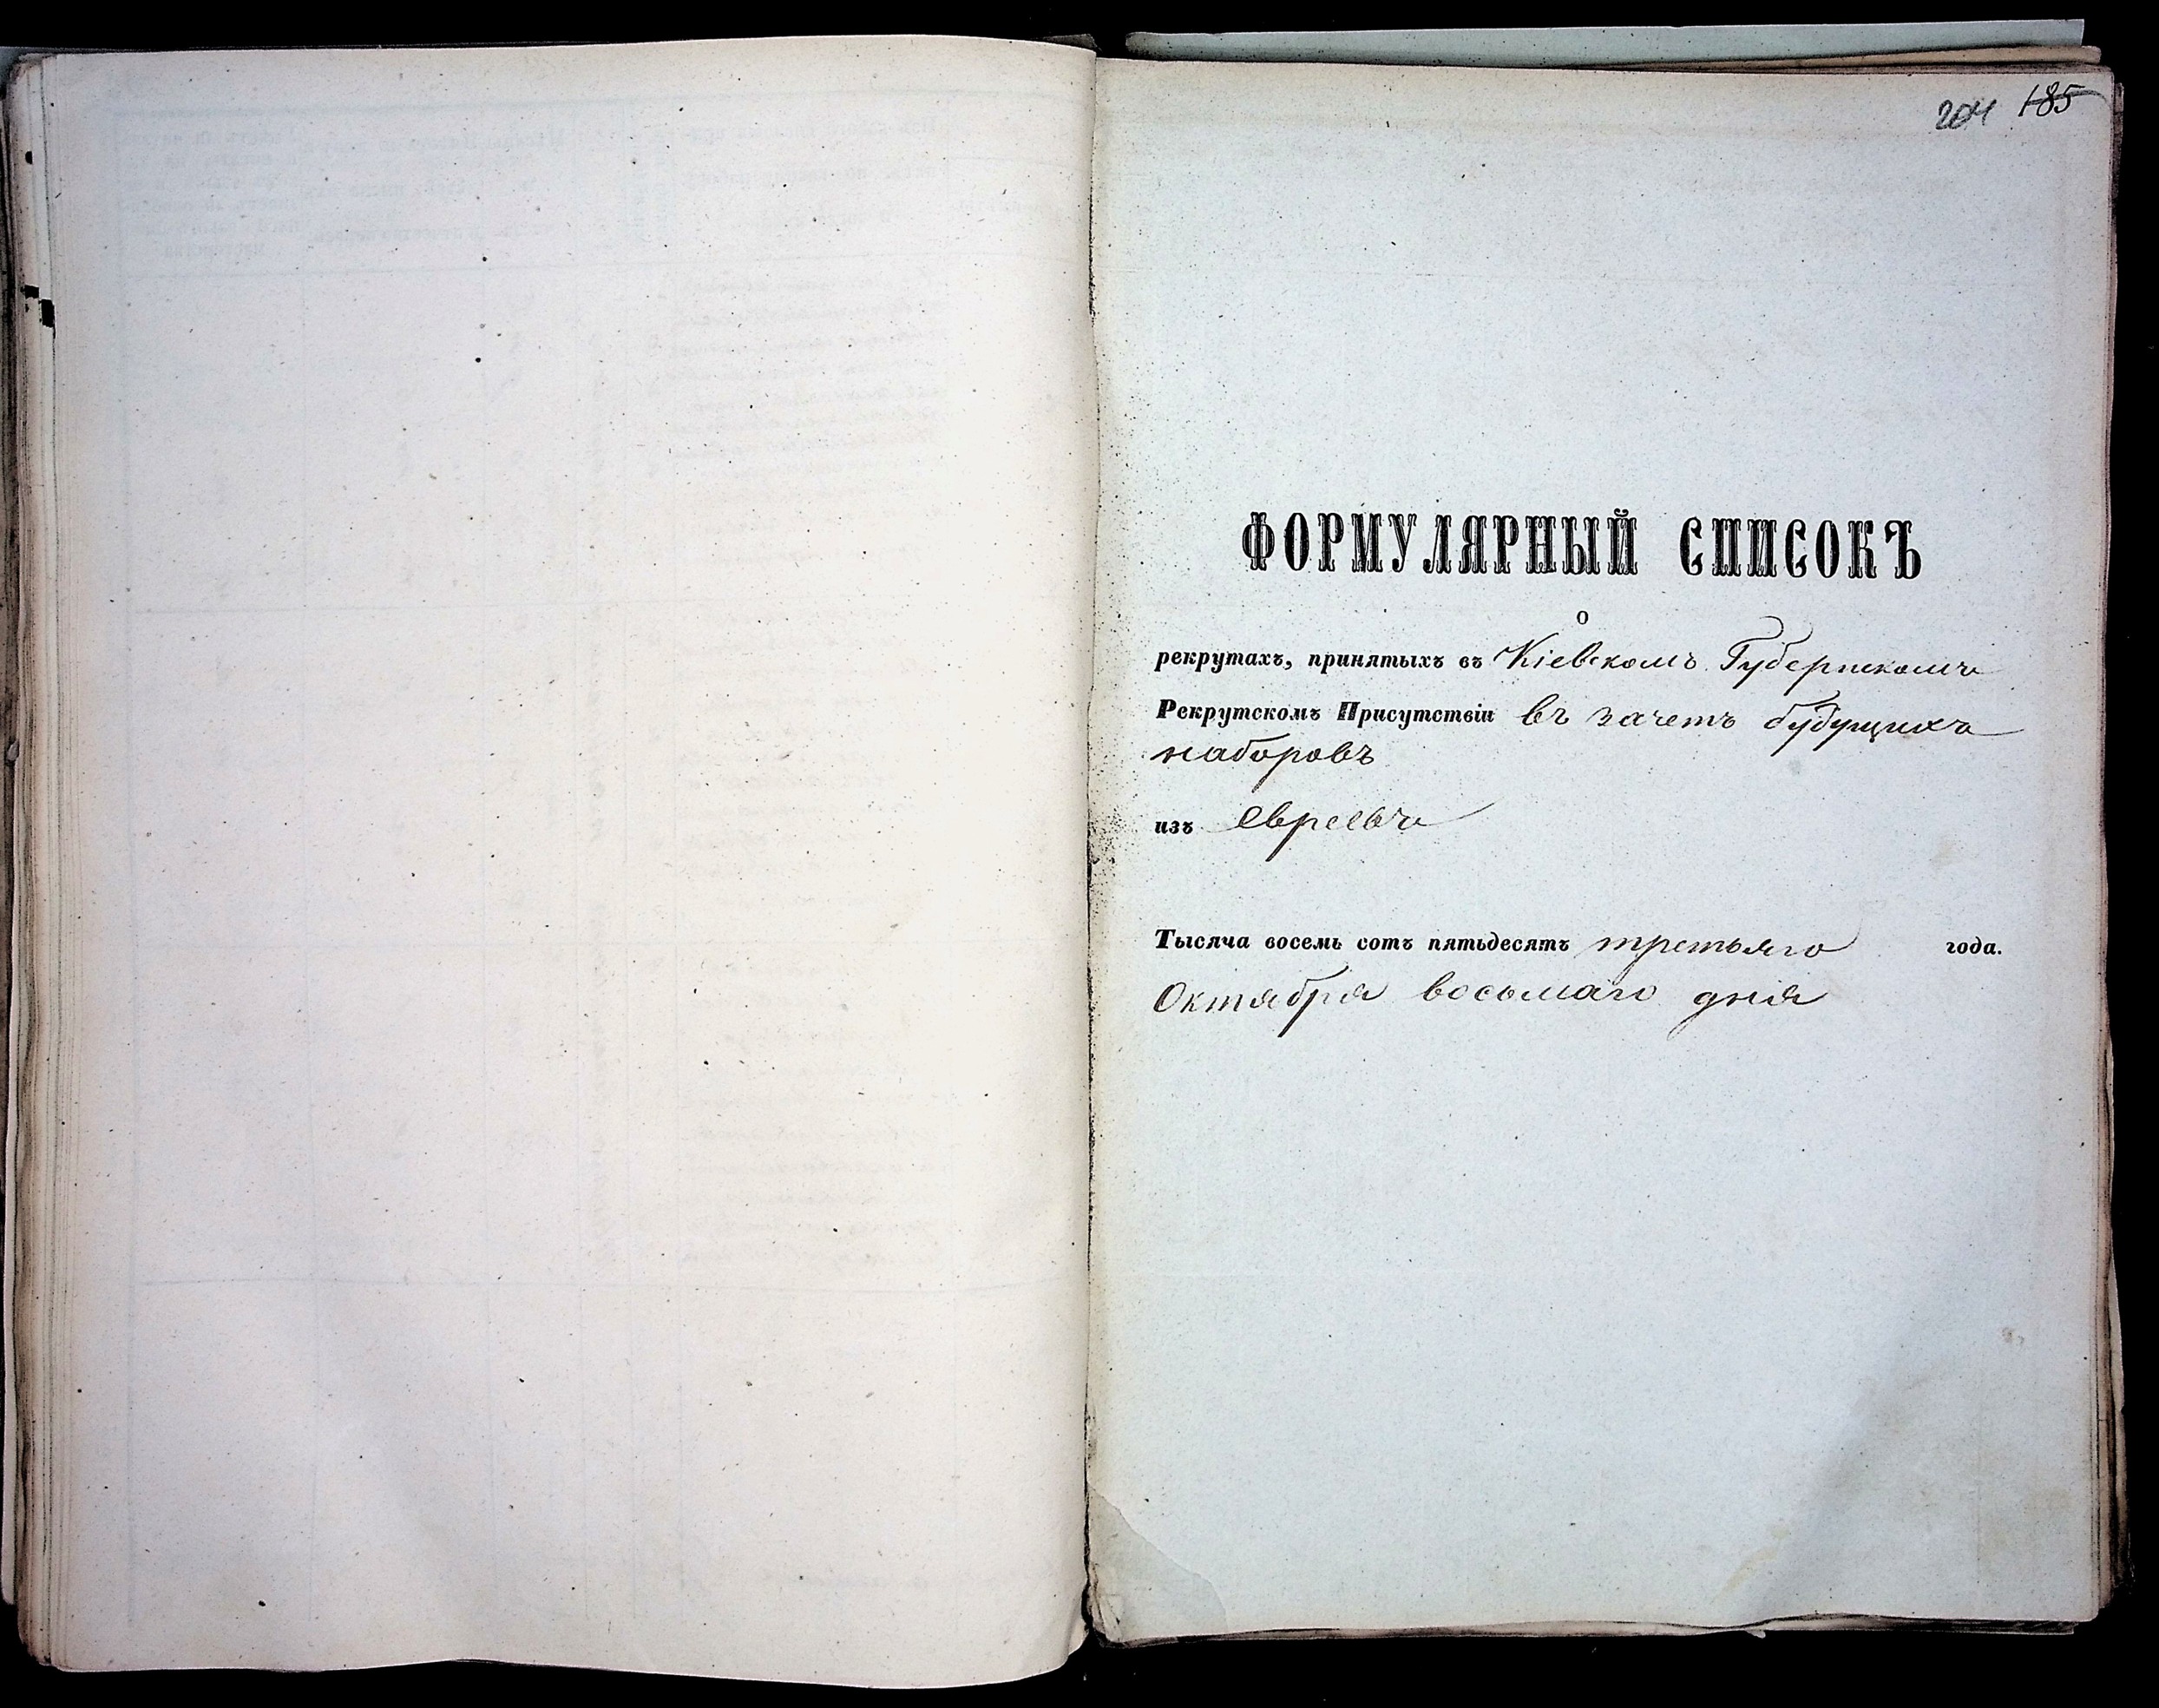 204 185
ФОРМУЛЯРНЫЙ СПИСОКЪ
о
рекрутахъ, принятыхъ въ Кіевскомъ Губернскомъ
Рекрутскомъ Присутствіи въ зачетъ будущихъ
наборовъ
изъ евреевъ
Тысяча восемь сотъ пятьдесятъ третьяго года.
Октября восьмаго дня